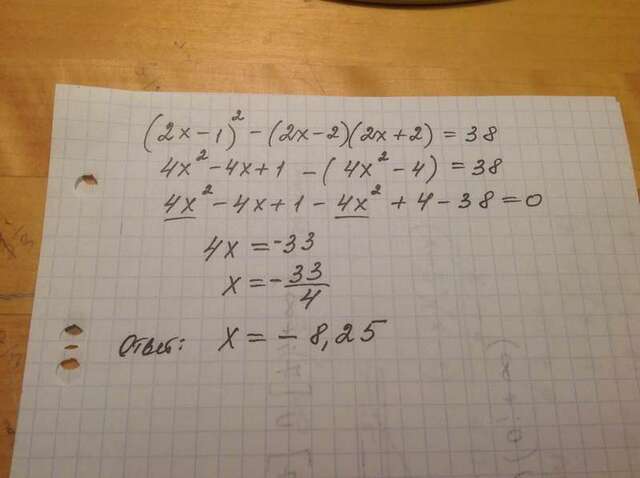 (2x-1)² - (2x-2)(2x+2) = 38
4x² - 4x + 1 - (4x² - 4) = 38
4x² - 4x + 1 - 4x² + 4 - 38 = 0
4x = -33
x = - 33/4
Ответ: x = - 8,25